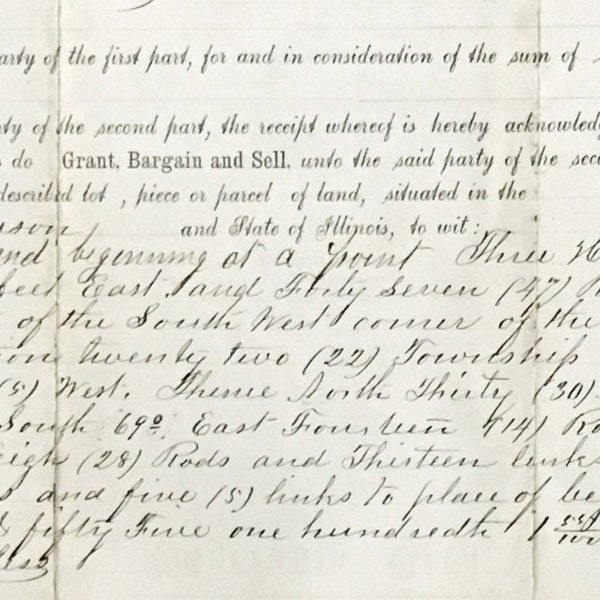 arty of the first part, for and in consideration of the sum of
rty of the second part, the receipt whereof is hereby acknowledg
s do Grant, Bargain and Sell, unto the said party of the seco
described lot , piece or parcel of land, situated in the
uson and State of Illinois, to wit:
and begonning at a point Three H
feet East and Forty Seven (47) R
t of the South West corner of the
tion twenty two (22) Township
(5) West. Thence North Thirty (30)
South 69º East Fourteen (14) Ro
eigh (28) Rods and Thirteen links
s and five (5) links to place of be
& fifty Five one hundredth 1 55/100
less